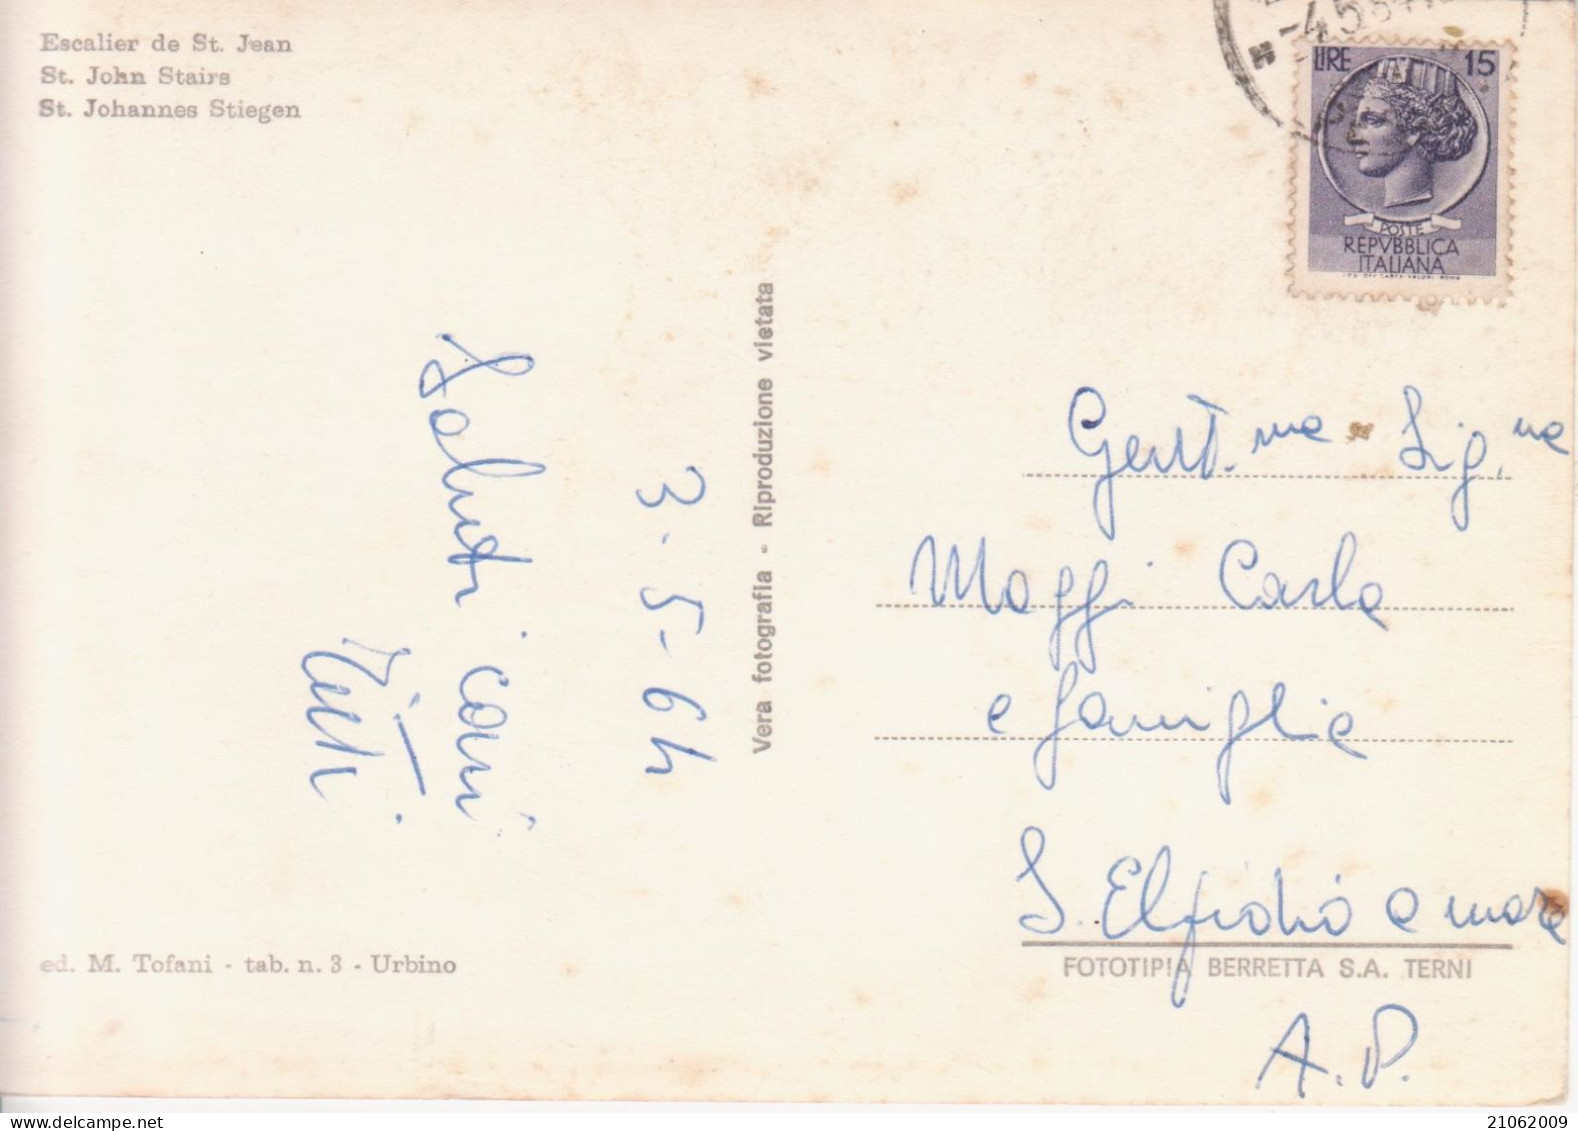 Escalier de St. Jean
St. John Stairs
St. Johannes Stiegen
LIRE 15
POSTE
REPVBBLICA
ITALIANA
Saluti cari
3-5-64
Vera fotografia - Riproduzione vietata
Gent.ma Sig.na
Maggi Carla
e famiglia
S. Elpidio a mare
A.P.
ed. M. Tofani - tab. n. 3 - Urbino
FOTOTIPIA BERRETTA S.A. TERNI
21062009